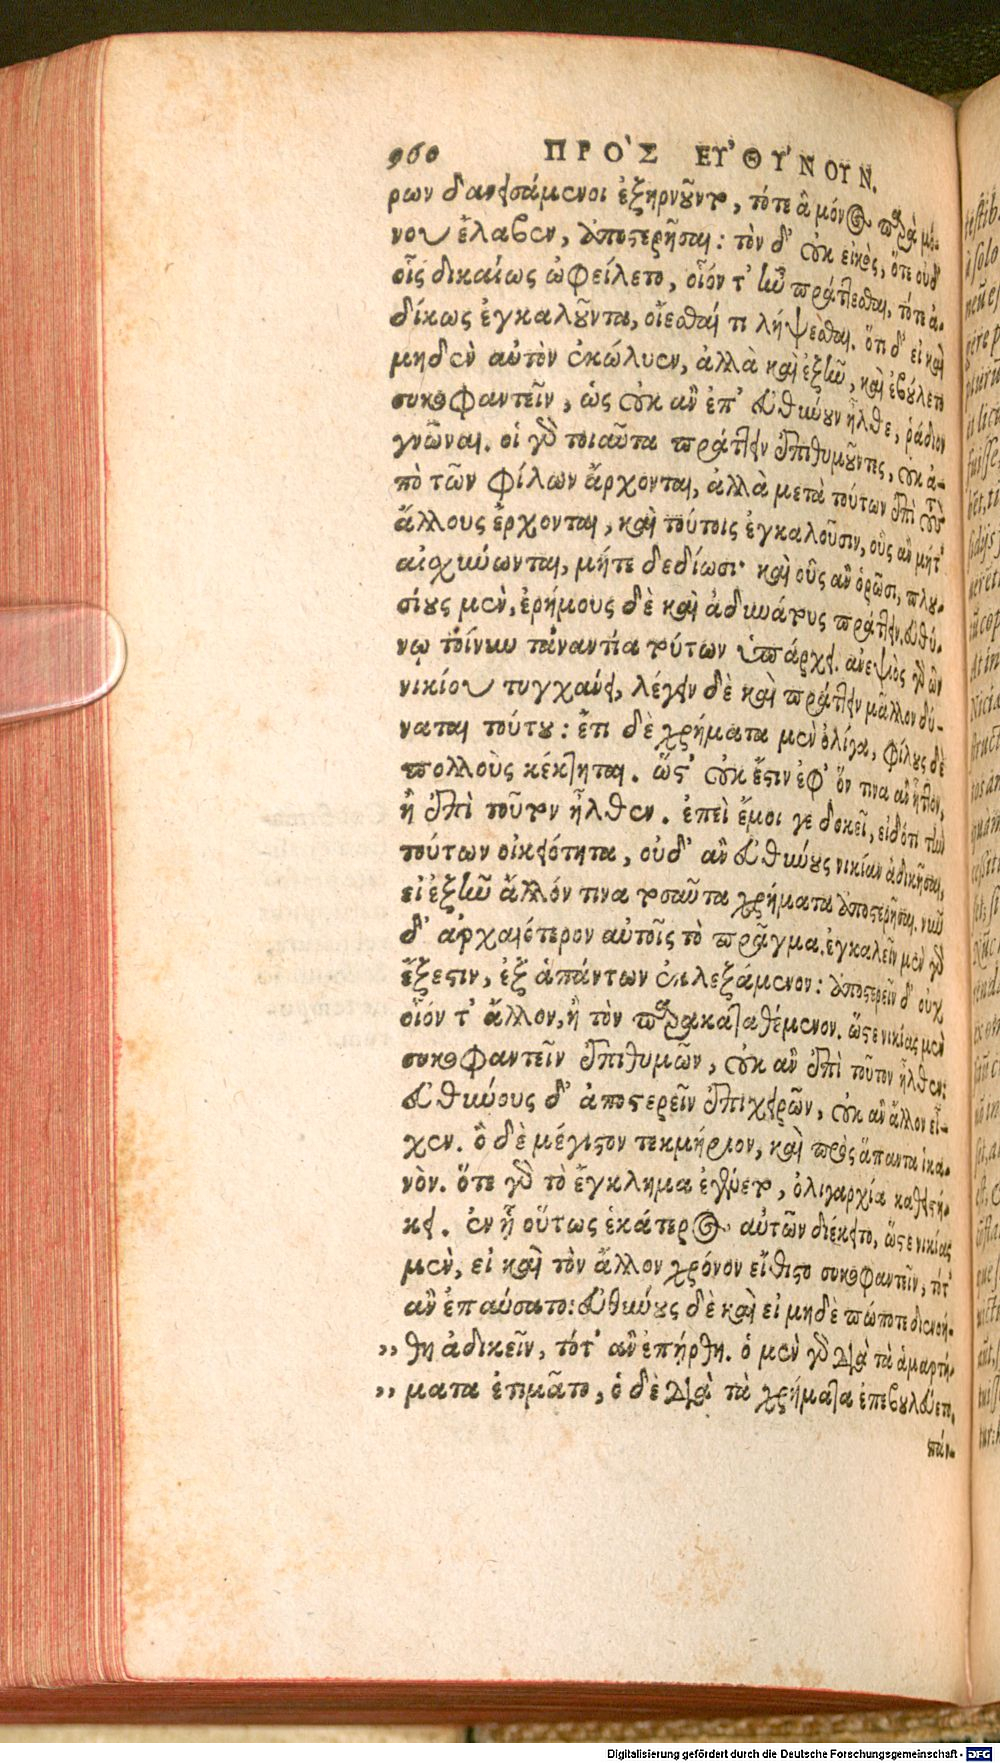 960 ΠΡΟ`Σ ΕΥ᾿ΘΥ´ΝΟΥΝ.
ρων δανεισάμενοι ἐξηρνοῦντο, τότε ἃ μόνος παρὰ μό-
νου ἔλαβεν, ἀποστερῆσαι: τὸν δ' οὐκ εἰκὸς, ὅτε οὐδ'
οἷς δικαίως ὠφείλετο, οἷόν τ' ἦν πράττεσθαι, τότε ἀ-
δίκως ἐγκαλοῦντα, οἴεσθαί τι λήψεσθαι. ὅτι δ' εἰ καὶ
μηδὲν αὐτὸν ἐκώλυεν, ἀλλὰ καὶ ἐξῆν, καὶ ἐβούλετο
συκοφαντεῖν, ὡς οὐκ ἂν ἐπ' Εὐθύνουν ἦλθε, ῥᾴδιον
γνῶναι. οἱ γὰρ τοιαῦτα πράττειν ἐπιθυμοῦντες, οὐκ ἀ-
πὸ τῶν φίλων ἄρχονται, ἀλλὰ μετὰ τούτων ἐπὶ τοὺς
ἄλλους ἔρχονται, καὶ τούτοις ἐγκαλοῦσιν, οὓς ἂν μήτ'
αἰσχύνωνται, μήτε δεδίωσι· καὶ οὓς ἂν ὁρῶσι, πλου-
σίους μὲν, ἐρήμους δὲ καὶ ἀδυνάτους πράττειν. Εὐθύ-
νῳ τοίνυν τἀναντία τούτων ὑπάρχει. ἀνεψιὸς γὰρ ὢν
νικίου τυγχάνει, λέγειν δὲ καὶ πράττειν μᾶλλον δύ-
ναται τούτου: ἔτι δὲ χρήματα μὲν ὀλίγα, φίλους δὲ
πολλοὺς κέκτηται. ὥστ' οὐκ ἔστιν ἐφ' ὅν τινα ἂν ἧττον,
ἢ ἐπὶ τοῦτον ἦλθεν. ἐπεὶ ἔμοι γε δοκεῖ, εἰδότι τὴν
τούτων οἰκειότητα, οὐδ' ἂν Εὐθύνους νικίαν ἀδικῆσαι,
εἰ ἐξῆν ἄλλόν τινα τοσαῦτα χρήματα ἀποστερῆσαι. νῦν
δ' ἀρχαιότερον αὐτοῖς τὸ πρᾶγμα. ἐγκαλεῖν μὲν γὰρ
ἔξεστιν, ἐξ ἁπάντων ἐκλεξάμενον: ἀποστερεῖν δ' οὐχ
οἷόν τ' ἄλλον, ἢ τὸν παρακαταθέμενον. ὥστε νικίας μὲν
συκοφαντεῖν ἐπιθυμῶν, οὐκ ἂν ἐπὶ τοῦτον ἦλθεν:
Εὐθύνους δ' ἀποστερεῖν ἐπιχειρῶν, οὐκ ἂν ἄλλον εἶ-
χεν. ὃ δὲ μέγιστον τεκμήριον, καὶ πρὸς ἅπαντα ἱκα-
νὸν. ὅτε γὰρ τὸ ἔγκλημα ἐγένετο, ὀλιγαρχία καθειστή-
κει. ἐν ᾗ οὕτως ἑκάτερος αὐτῶν διέκειτο, ὥστε νικίας
μὲν, εἰ καὶ τὸν ἄλλον χρόνον εἴθιστο συκοφαντεῖν, τότ'
ἂν ἐπαύσατο: Εὐθύνους δὲ καὶ εἰ μηδὲ πώποτε διενοή-
„ θη ἀδικεῖν, τότ' ἂν ἐπήρθη. ὁ μὲν γὰρ διὰ τὰ ἁμαρτή-
„ ματα ἐτιμᾶτο, ὁ δὲ διὰ τὰ χρήματα ἐπεβουλεύετο,
πάν-
Digitalisierung gefördert durch die Deutsche Forschungsgemeinschaft - DFG